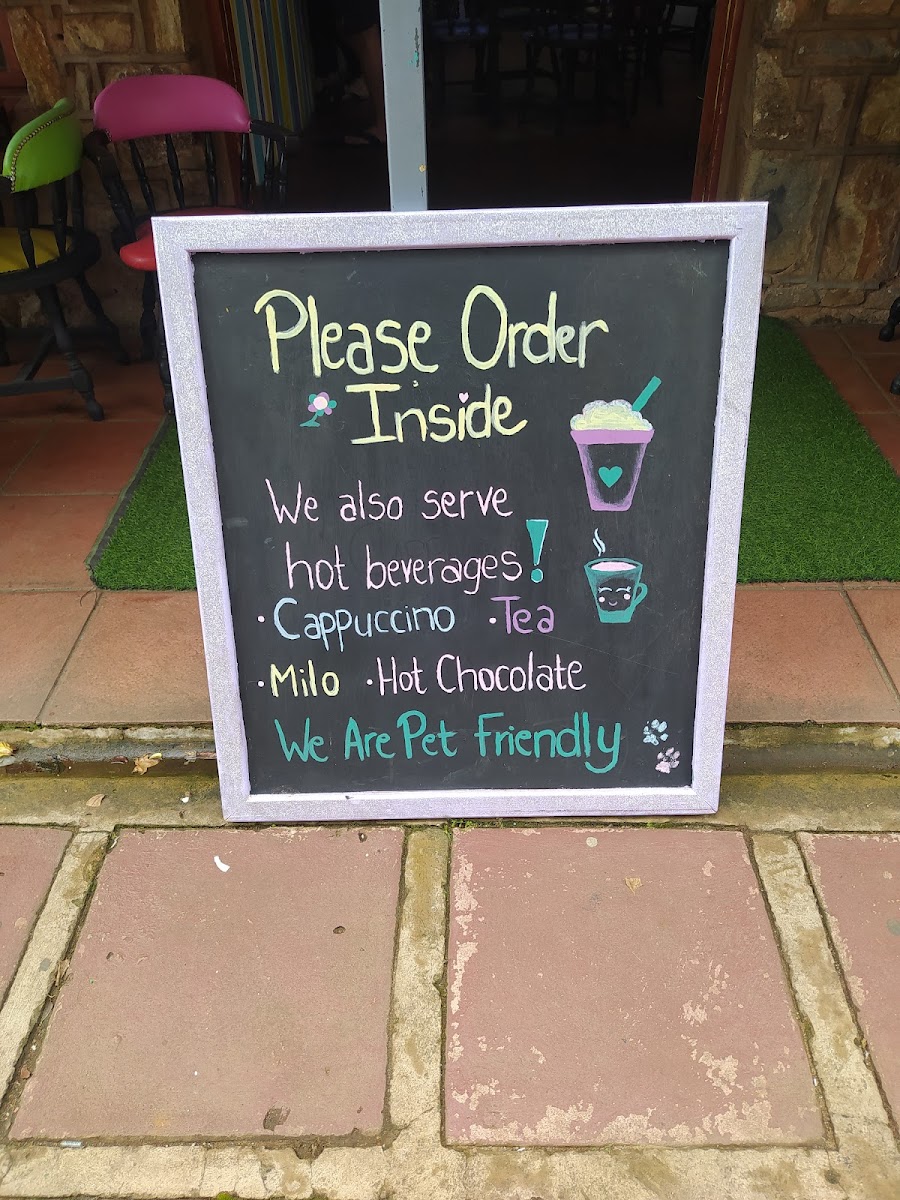 Please Order
Inside
We also serve
hot beverages!
· Cappuccino · Tea
· Milo · Hot Chocolate
We Are Pet Friendly